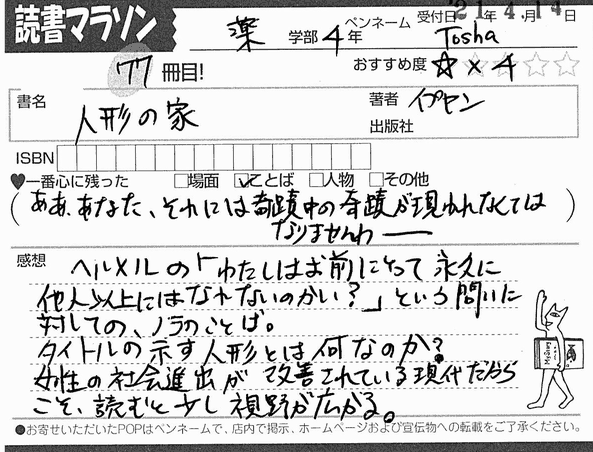 読書マラソン
受付日 '21年 4月 14日
薬 学部 4年 ペンネーム Tosha
77 冊目! おすすめ度 ☆×4
書名 人形の家 著者 イプセン
出版社
ISBN
♥一番心に残った □場面 ☑ことば □人物 □その他
(ああ、あなた、それには奇蹟中の奇蹟が現われなくては
なりませんわ──)
感想 ヘルメルの「わたしはお前にとって永久に
他人以上にはなれないのかい?」という問いに
対しての、ノラのことば。
タイトルの示す人形とは何なのか?
女性の社会進出が改善されている現代だから
こそ、読むと少し視野が広がる。
●お寄せいただいたPOPはペンネームで、店内で掲示、ホームページおよび宣伝物への転載をご了承ください。